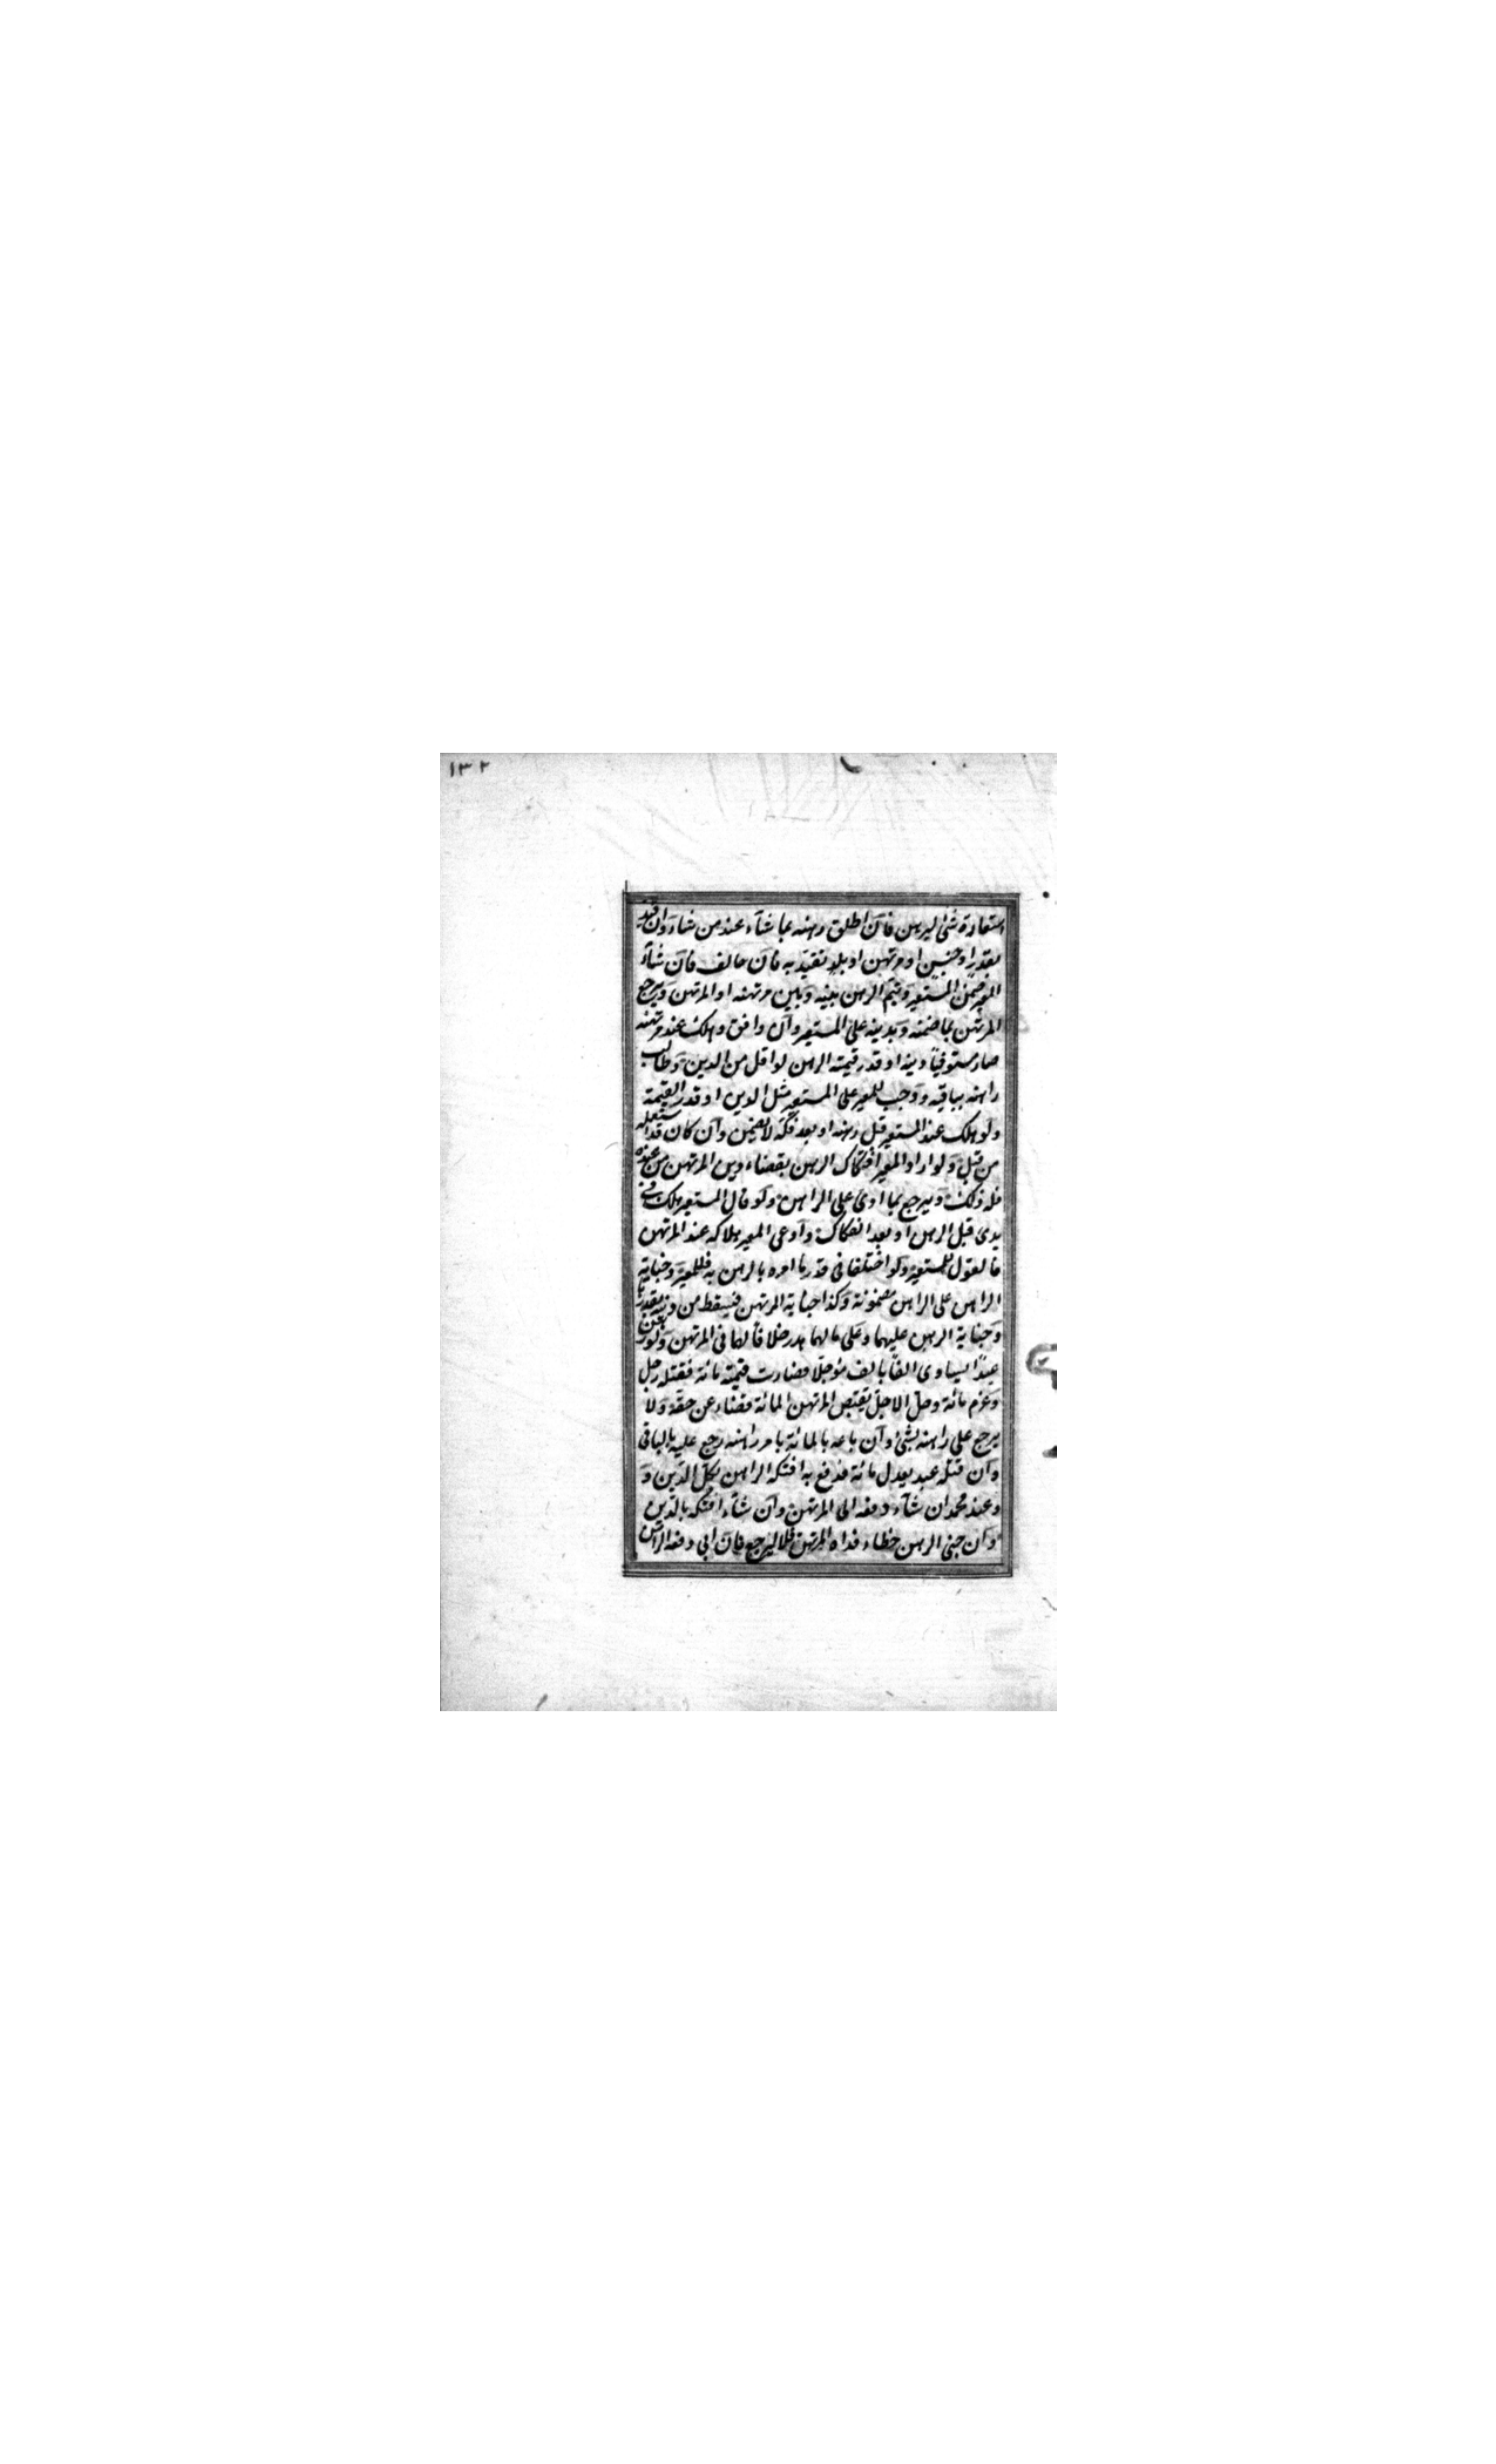 ١٣٢
استعارة شئ ليرهن فان اطلق رهنه بما شآء عند من شاء وان قيد
بقدر او جنس او مرتهن او بلد تقيد به فان خالف فان شآء
المعير ضمن المستعير ويتم الرهن بينه وبين مرتهنه او المرتهن ويرجع
المرتهن بما ضمنه وبدينه على المستعير وان وافق وهلك عند مرتهنه
صار مستوفيا دينه او قدر قيمته الرهن لو اقل من الدين وطالب
راهنه بباقيه ووجب للمعير على المستعير مثل الدين او قدر القيمة
ولو هلك عند المستعير قبل رهنه او بعد فكه لا يضمن وان كان قد استعمله
من قبل ولو اراد المعير افتكاك الرهن بقضاء دين المرتهن من عنده
فله ذلك ويرجع بما ادى على الراهن ولو قال المستعير هلك في
يدى قبل الرهن او بعد انفكاك وادعى المعير هلاكه عند المرتهن
فالقول للمستعير ولو اختلفا فى قدر ما امره بالرهن به فللمعير وجناية
الراهن على الراهن مضمونة وكذا جناية المرتهن فيسقط من دينه بقدرها
وجناية الرهن عليهما وعلى مالهما هدر خلافا لهما فى المرتهن ولو رهن
عبدا يساوى الفا بالف مؤجلا فصارت قيمته مائة فقتله رجل
وغرم مائة وحل الاجل يقبض المرتهن المائة قضاء عن حقه ولا
يرجع على راهنه بشئ وان باعه بالمائة بامر راهنه رجع عليه بالباقى
وان قتله عبد يعدل مائة فدفع به افتكه الراهن بكل الدين و
وعند محمد ان شآء دفعه الى المرتهن وان شآء افتكه بالدين
وان جنى الرهن خطاء فداه المرتهن ولا يرجع فان ابى دفعه الراهن